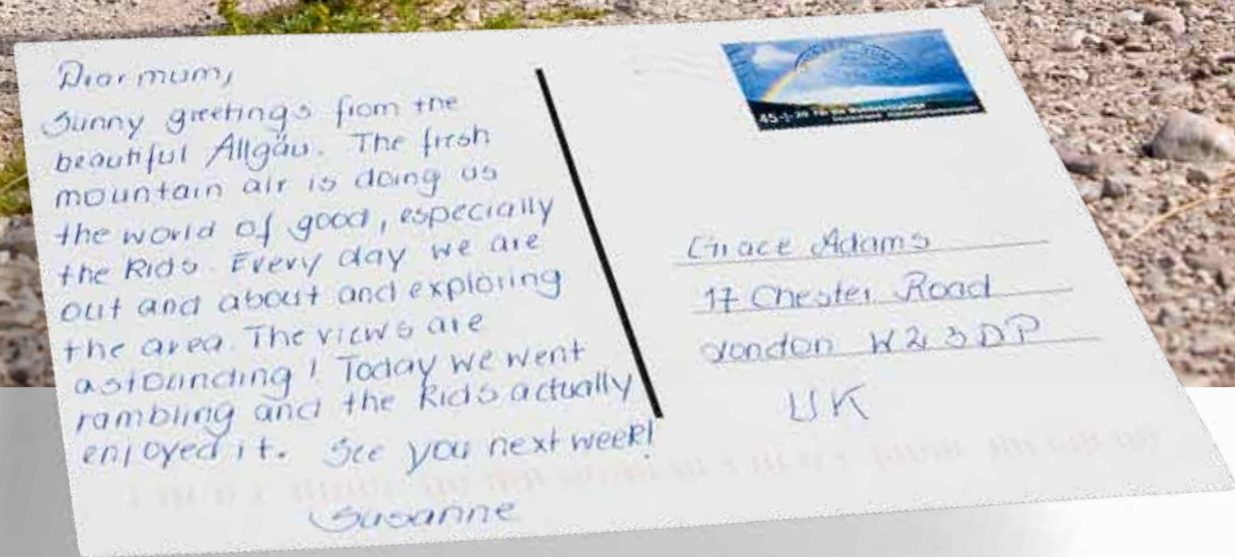 Dear mum,
Sunny greetings from the
beautiful Allgäu. The fresh
mountain air is doing us
the world of good, especially
the kids. Every day we are
out and about and exploring
the area. The views are
astounding! Today we went
rambling and the kids actually
enjoyed it. See you next week!
Susanne
45
Grace Adams
17 Chester Road
London W2 3DP
UK